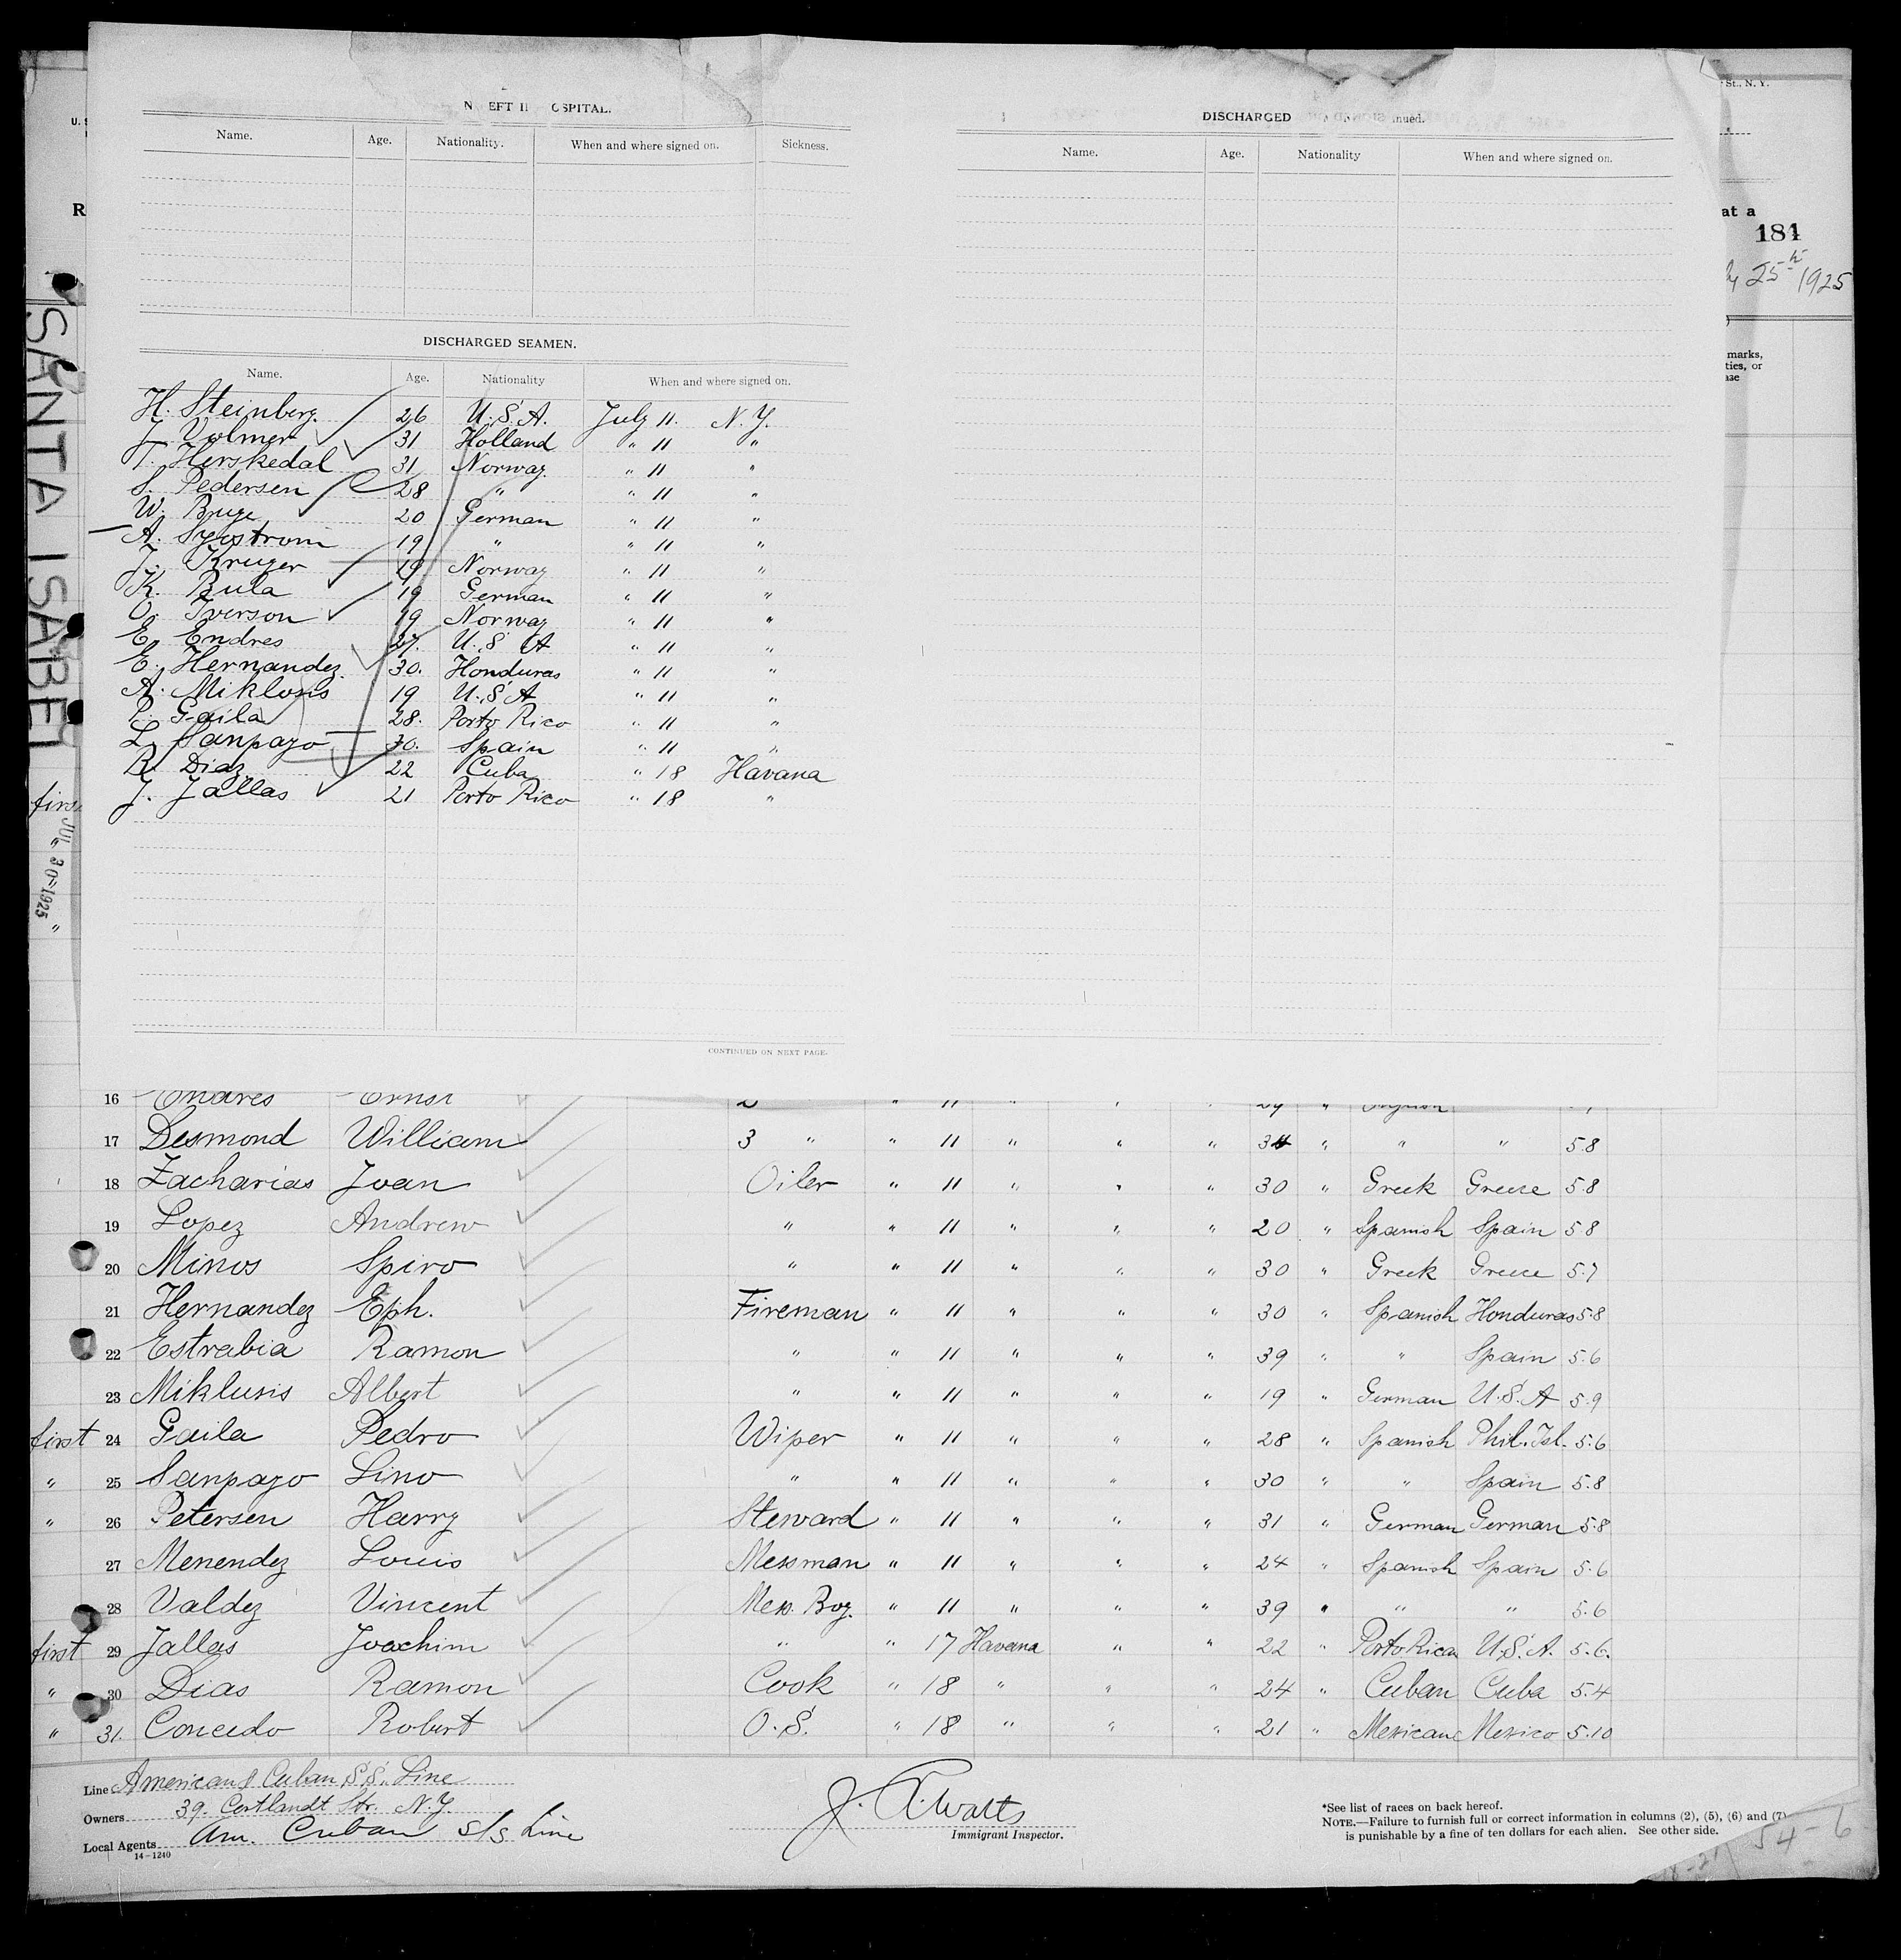 St., N. Y.
U. S
N EFT I OSPITAL.
Name. Age. Nationality. When and where signed on. Sickness.
DISCHARGED inued.
Name. Age. Nationality When and where signed on.
R
at a
181
25th 1925
marks,
ties, or
SANTA ISABEL
DISCHARGED SEAMEN.
Name. Age. Nationality When and where signed on.
H. Steinberg. 26 U.S.A. July 11. N.Y.
J. Volmer 31 Holland " 11 "
T. Herskedal 31 Norway. " 11 "
S. Pedersen 28 " " 11 "
W. Bruge 20 German " 11 "
A. Sygstrom 19 " " 11 "
J. Kruger 19 Norway " 11 "
K. Bula 19 German " 11 "
O. Iverson 19 Norway " 11 "
E. Endres 27. U.S A " 11 "
E. Hernandez. 30. Honduras " 11 "
A. Miklusis 19 U.S.A " 11 "
P. Gaila 28. Porto Rico " 11 "
L. Sanpago 30. Spain " 11 "
R. Diaz 22 Cuba " 18 Havana
J. Jallas 21 Porto Rico " 18 "
first
JUL 30 1925
CONTINUED ON NEXT PAGE.
16 Endres Ernst 2 " 11 " " "
17 Desmond William 3 " " 11 " " " 34 " " " 5.8
18 Zacharias Joan Oiler " 11 " " " 30 " Greek Greece 5.8
19 Lopez Andrew " " 11 " " " 20 " Spanish Spain 5.8
20 Minos Spiro " " 11 " " " 30 " Greek Greece 5.7
21 Hernandez Eph. Fireman " 11 " " " 30 " Spanish Honduras 5.8
22 Estrabia Ramon " " 11 " " " 39 " " Spain 5.6
23 Miklusis Albert " " 11 " " " 19 " German U.S.A 5.9
first 24 Gaila Pedro Wiper " 11 " " " 28 " Spanish Phil. Isl. 5.6
" 25 Sanpago Lino " " 11 " " " 30 " " Spain 5.8
" 26 Petersen Harry Steward " 11 " " " 31 " German German 5.8
27 Menendez Louis Messman " 11 " " " 24 " Spanish Spain 5.6
28 Valdez Vincent Mess. Boy. " 11 " " " 39 " " " 5.6
first 29 Jallas Joachim " " 17 Havana " " 22 " Porto Rican U.S.A. 5.6.
" 30 Dias Ramon Cook " 18 " " " 24 " Cuban Cuba 5.4
" 31. Concedo Robert O.S. " 18 " " " 21 " Mexican Mexico 5.10
Line American & Cuban S.S. Line
Owners 39. Cortlandt Str. N.Y.
Local Agents Am. Cuban S/S Line
14-1240
J. A. Watts
Immigrant Inspector.
*See list of races on back hereof.
NOTE.—Failure to furnish full or correct information in columns (2), (5), (6) and (7)
is punishable by a fine of ten dollars for each alien. See other side.
54-6